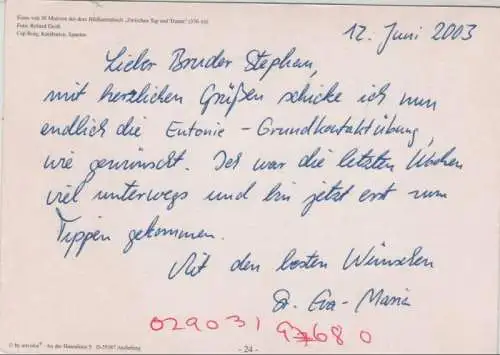 Eines von 30 Motiven aus dem Bildkartenbuch „Zwischen Tag und Traum“
Foto: Roland Groß
Cap Roig, Katalonien, Spanien
12. Juni 2003
Lieber Bruder Stephan,
mit herzlichen Grüßen schicke ich nun
endlich die Eutonie - Grundkontaktübung,
wie gewünscht. Ich war die letzten Wochen
viel unterwegs und bin jetzt erst zum
Tippen gekommen.
Mit den besten Wünschen
Sr. Eva-Maria
029031 97680
- 24 -